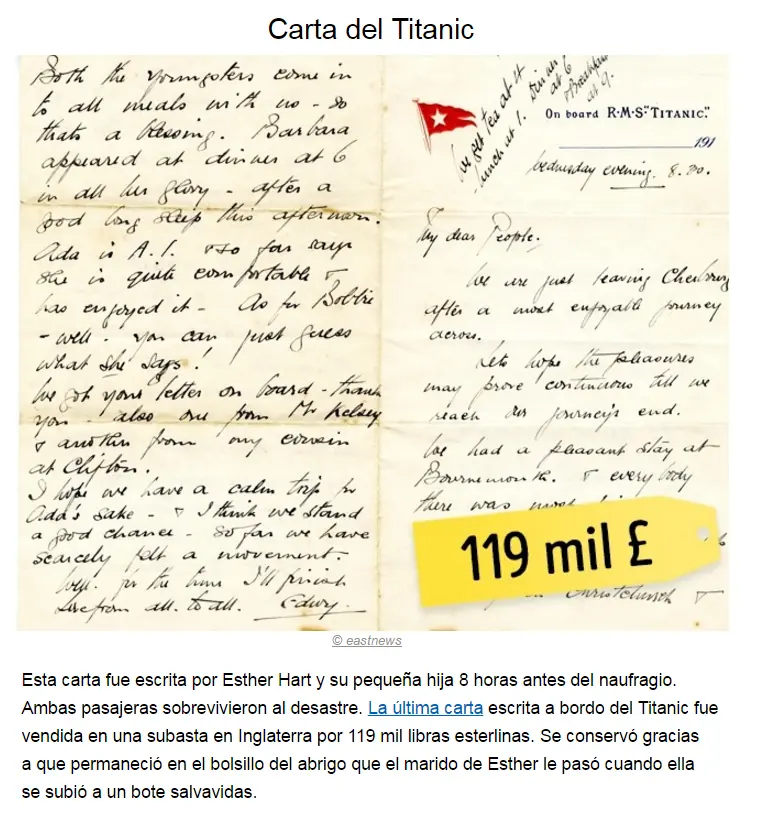 Carta del Titanic
Both the youngsters come in
to all meals with us - so
thats a blessing. Barbara
appeared at dinner at 6
in all her glory - after a
good long sleep this afternoon.
Ada is A.1. & so far says
she is quite comfortable &
has enjoyed it - As for Bobbie
- well - you can just guess
what she says!
We got your letter on board - thank
you - also one from Mr Kelsey
& another from my cousin
at Clifton.
I hope we have a calm trip for
Ada's sake - & I think we stand
a good chance - so far we have
scarcely felt a movement.
Well. for the time I'll finish
Love from all. to all. Edwy
We get tea at 4
Dinner at 6
& Breakfast at 9.
lunch at 1.
On board R·M·S·"TITANIC."
191
Wednesday evening. 8.30.
My dear People.
We are just leaving Cherbourg
after a most enjoyable journey
across.
Lets hope the pleasures
may prove continuous till we
reach our journey's end.
We had a pleasant stay at
Bournemouth. & every body
there was most
119 mil £
Christchurch &
© eastnews
Esta carta fue escrita por Esther Hart y su pequeña hija 8 horas antes del naufragio.
Ambas pasajeras sobrevivieron al desastre. La última carta escrita a bordo del Titanic fue
vendida en una subasta en Inglaterra por 119 mil libras esterlinas. Se conservó gracias
a que permaneció en el bolsillo del abrigo que el marido de Esther le pasó cuando ella
se subió a un bote salvavidas.